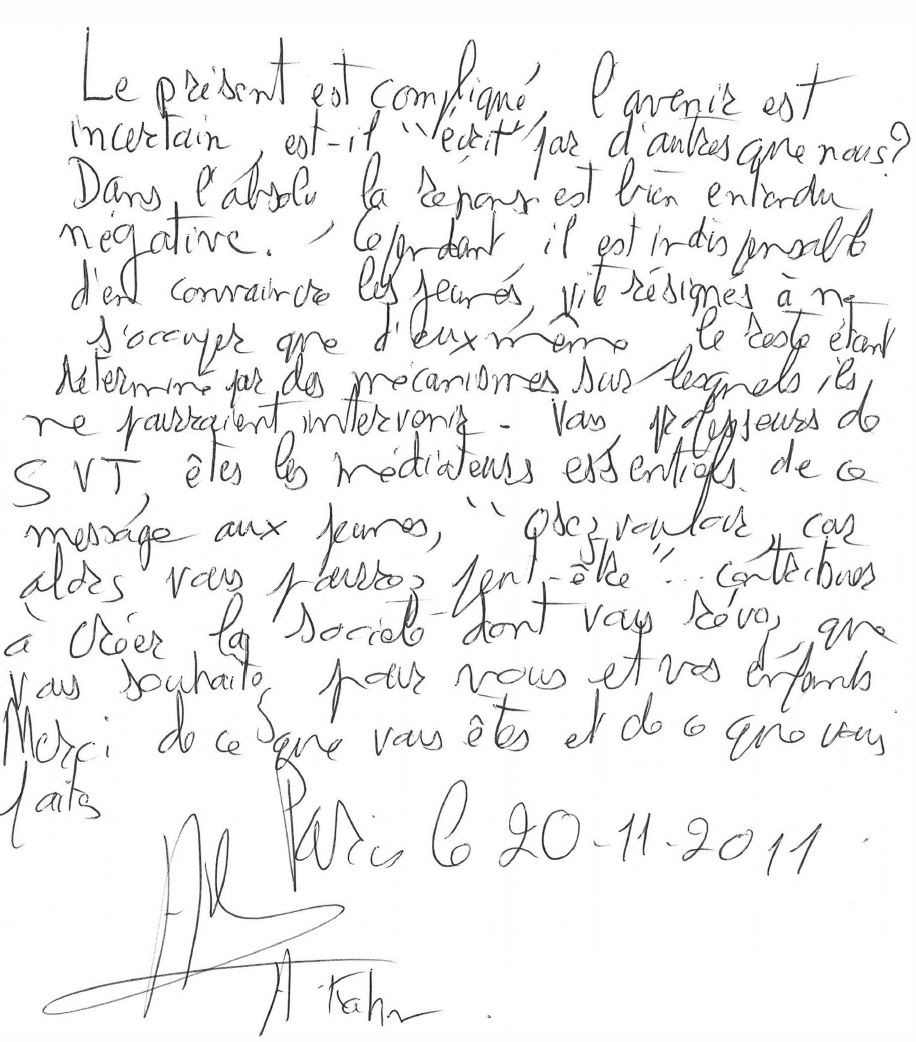 Le présent est compliqué, l'avenir est
incertain, est-il "écrit" par d'autres que nous?
Dans l'absolu la réponse est bien entendu
négative. Cependant il est indispensable
d'en convaincre les jeunes, vite résignés à ne
s'occuper que d'eux même le reste étant
déterminé par des mécanismes sur lesquels ils
ne pourraient intervenir - Vous, professeurs de
SVT, êtes les médiateurs essentiels de ce
message aux jeunes, "Osez vouloir, car
alors vous pourrez peut-être"... contribuer
à créer la société dont vous rêvez, que
vous souhaitez pour vous et vos enfants
Merci de ce que vous êtes et de ce que vous
faites
Paris le 20-11-2011.
A Kahn.